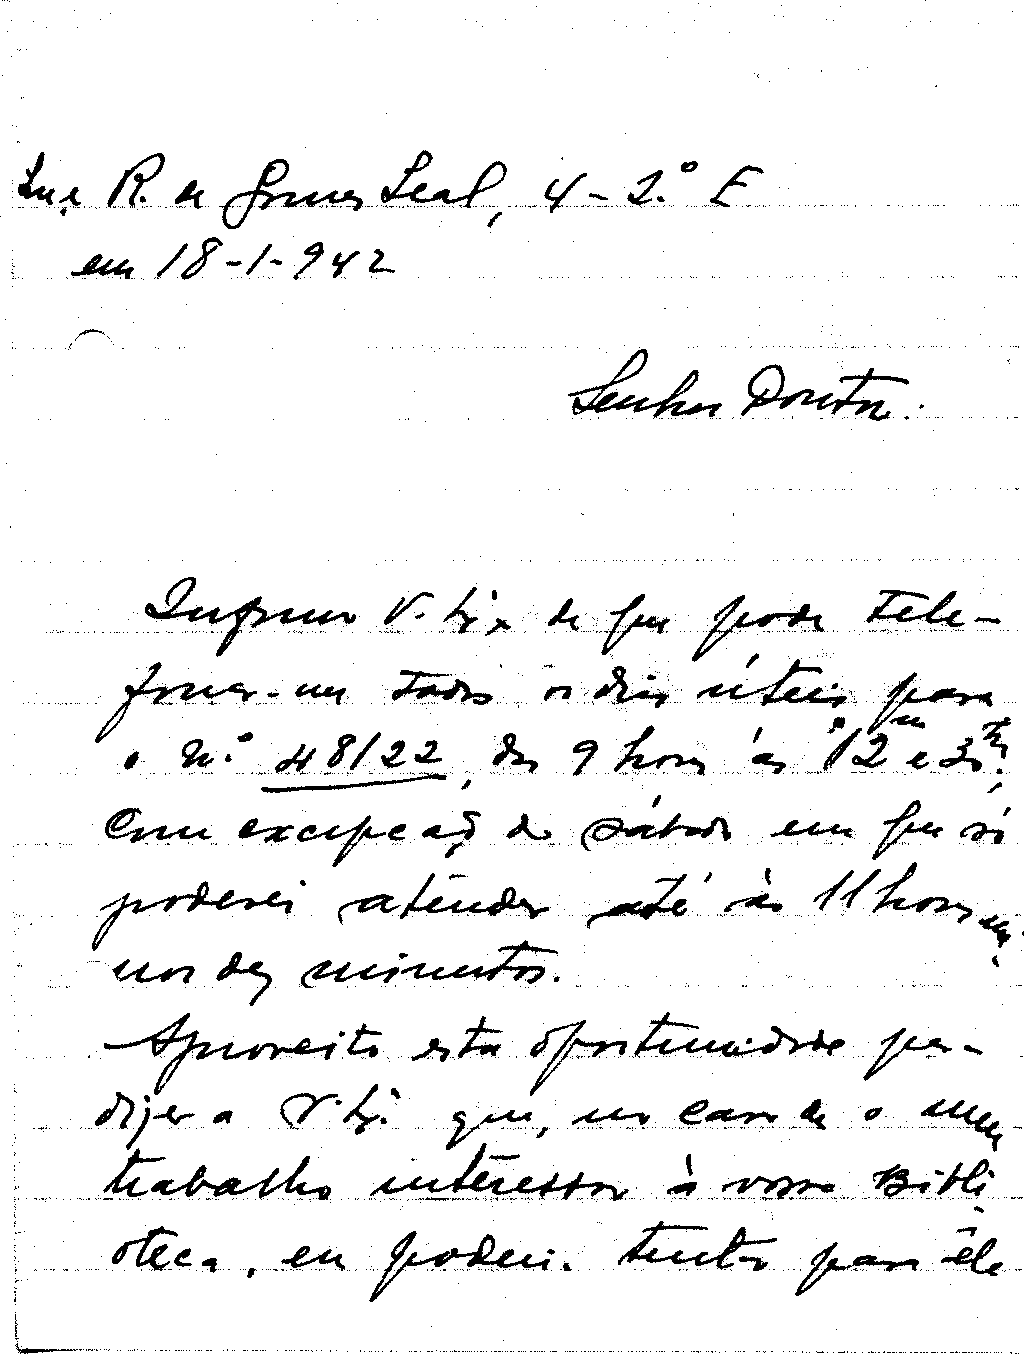 R. de Gomes Leal, 4-2.º E
em 18-1-942
Senhor Doutor.
Informo V. Ex.ª de que pode tele-
fonar-me todos os dias úteis para
o N.º 48122, das 9 horas às 12 e 30,
Com excepção de sábado em que só
poderei atender até às 11 horas me-
nos dez minutos.
Aproveito esta oportunidade para
dizer a V. Ex.ª que, no caso de o meu
trabalho interessar à vossa Bibli-
oteca, eu poderei tentar para êle